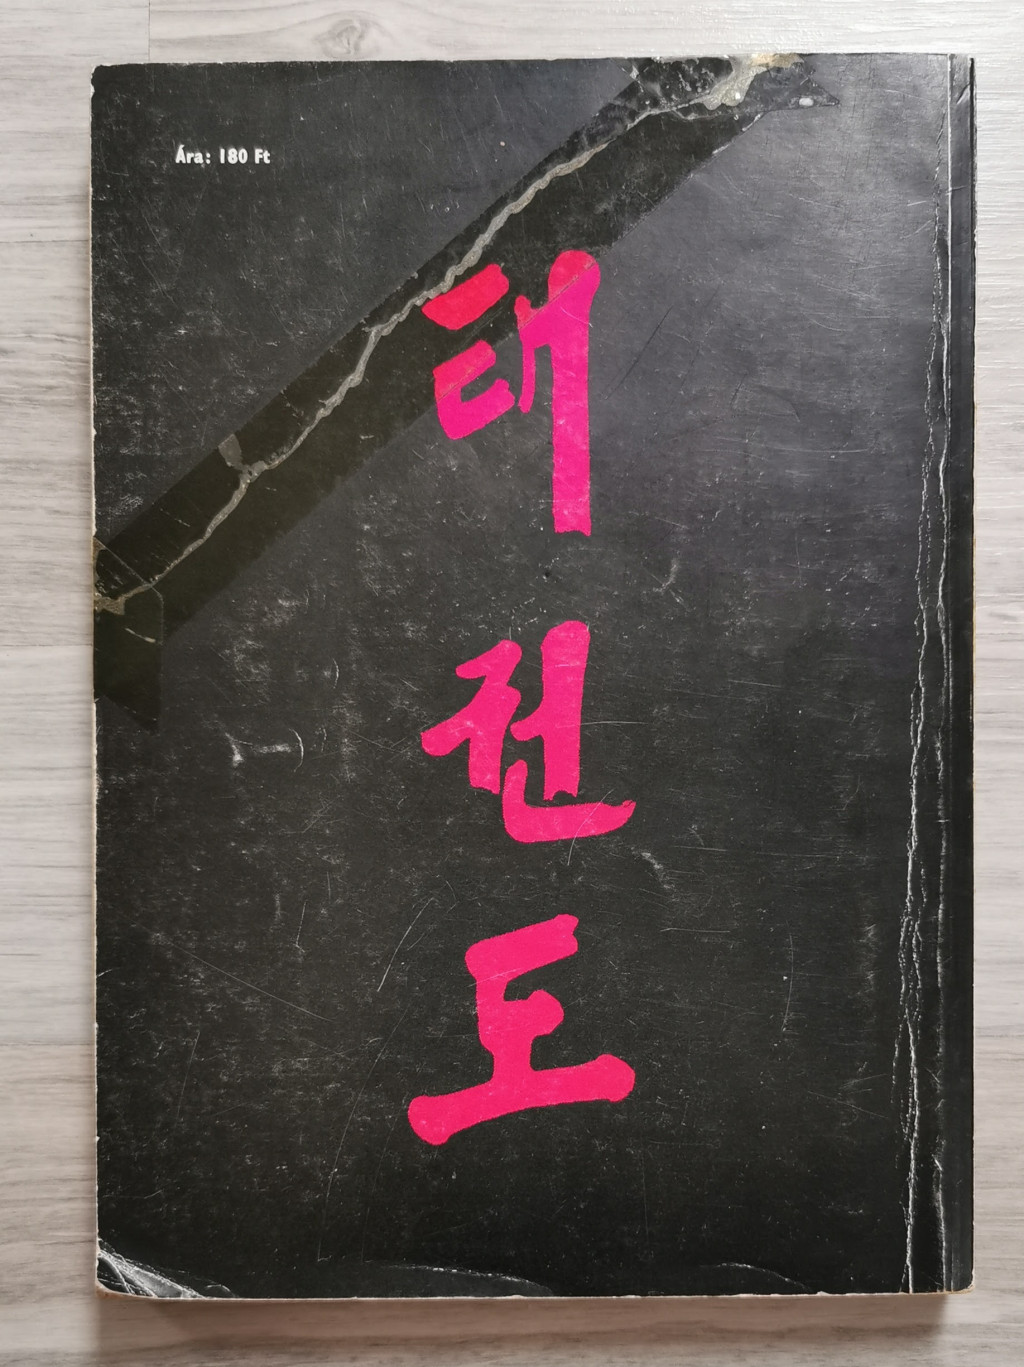 Ára: 180 Ft
태
권
도